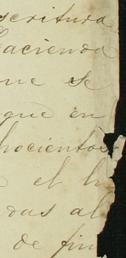 scritura
Hacienda
que se
que en
hocientos
el h
das al
de fin